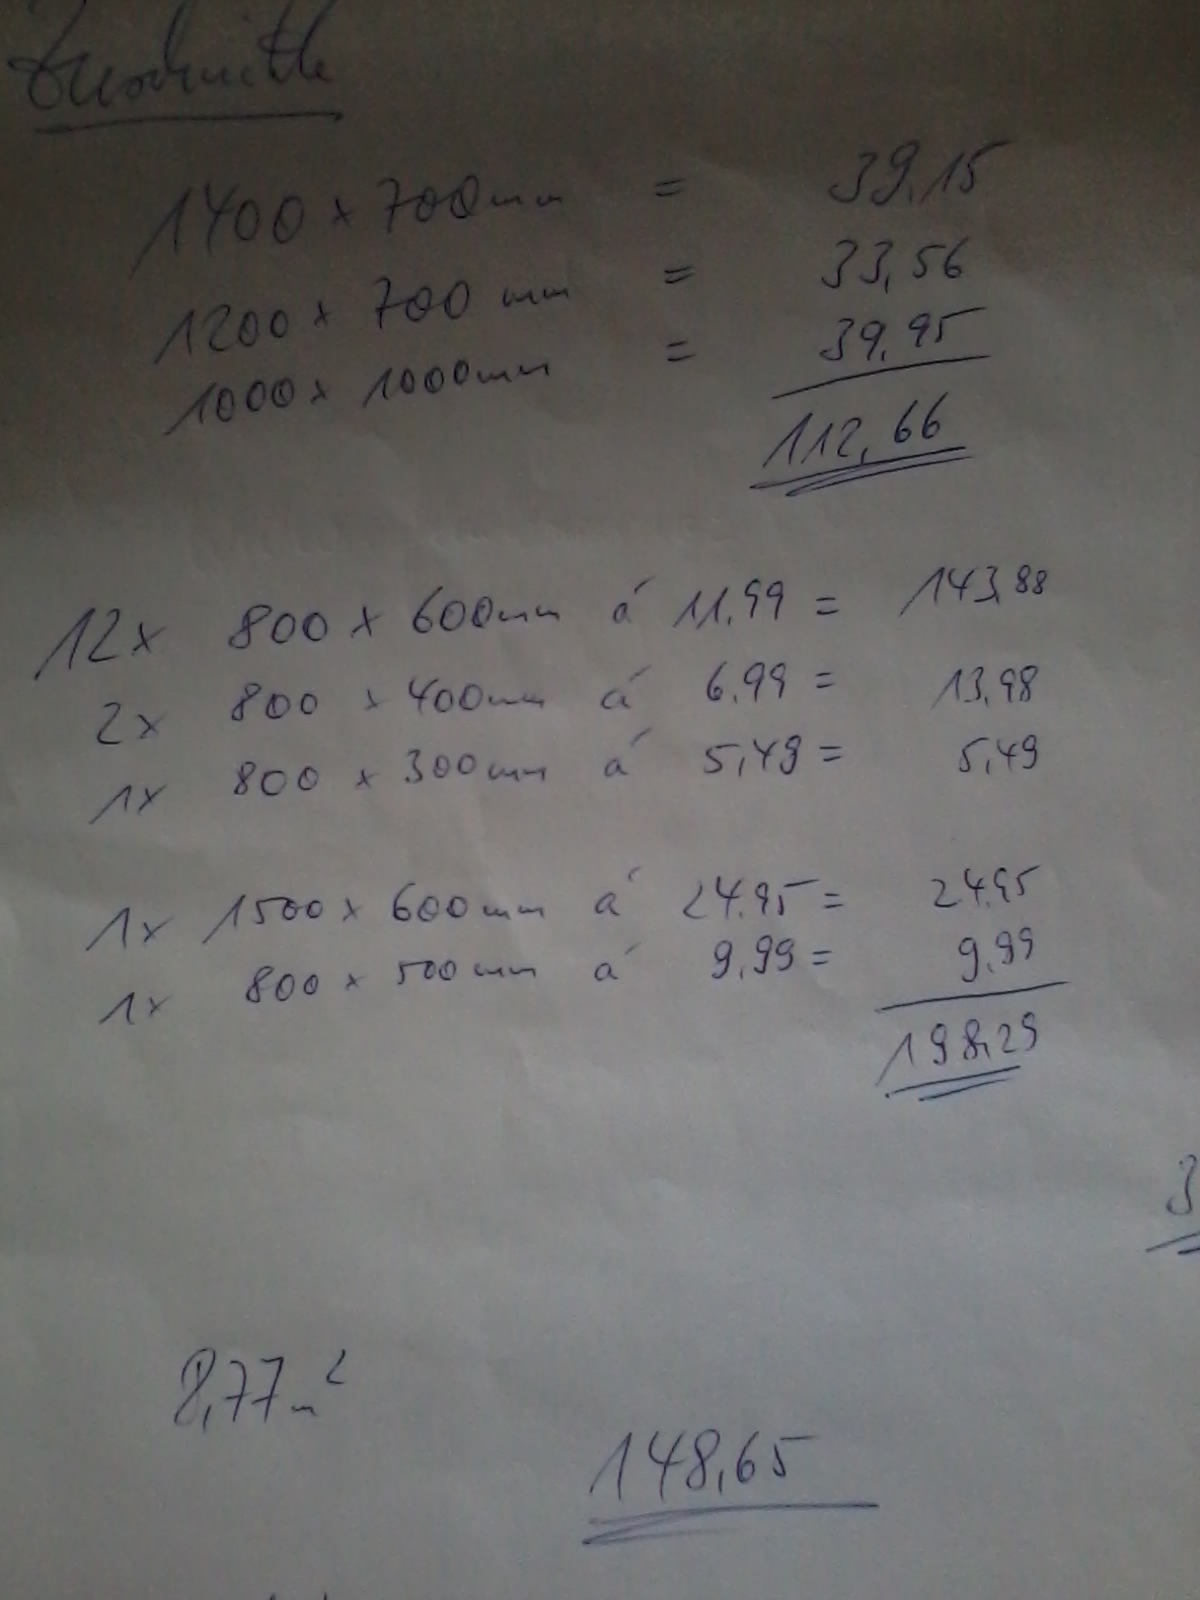 Zuschnitte
1400 x 700mm = 39,15
1200 x 700 mm = 33,56
1000 x 1000mm = 39,95
112,66
12x 800 x 600mm á 11,99 = 143,88
2x 800 x 400mm á 6,99 = 13,98
1x 800 x 300mm á 5,49 = 5,49
1x 1500 x 600mm á 24,95 = 24,95
1x 800 x 500mm á 9,99 = 9,99
198,29
3
8,77m²
148,65